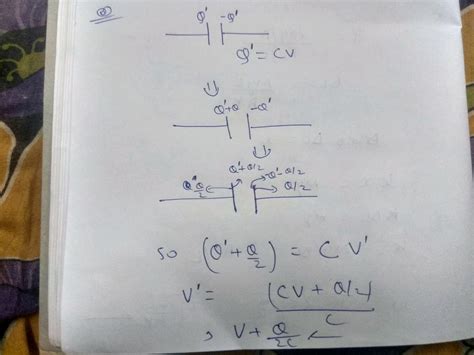 Q' -Q'
Q' = CV
⇓
Q'+Q -Q'
⇓
Q'+Q/2 -Q'-Q/2
Q/2 Q/2
so (Q' + Q/2) = C V'
V' = (CV + Q/2)/C
, V + Q/2C